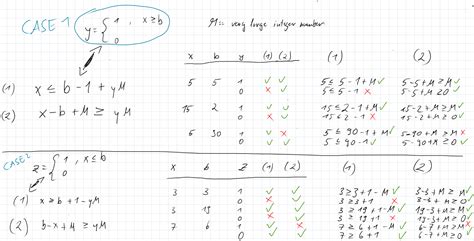 CASE 1
y = { 1 , x ≥ b
0
M = very large integer number
(1) x ≤ b - 1 + yM
(2) x - b + M ≥ yM
x b y (1) (2) (1) (2)
5 5 1 ✓ ✓ 5 ≤ 5 - 1 + M ✓ 5 - 5 + M ≥ M ✓
0 × ✓ 5 ≤ 5 - 1 × 5 - 5 + M ≥ 0 ✓
15 2 1 ✓ ✓ 15 ≤ 2 - 1 + M ✓ 15 - 2 + M ≥ M ✓
0 × ✓ 15 ≤ 2 - 1 × 15 - 2 + M ≥ 0 ✓
5 90 1 ✓ × 5 ≤ 90 - 1 + M ✓ 5 - 90 + M ≥ M ×
0 ✓ ✓ 5 ≤ 90 - 1 ✓ 5 - 90 + M ≥ 0 ✓
CASE 2
z = { 1 , x ≤ b
0
(1) x ≥ b + 1 - yM
(2) b - x + M ≥ yM
x b z (1) (2) (1) (2)
3 3 1 ✓ ✓ 3 ≥ 3 + 1 - M ✓ 3 - 3 + M ≥ M ✓
0 × ✓ 3 ≥ 3 + 1 × 3 - 3 + M ≥ 0 ✓
3 19 1 ✓ ✓ 3 ≥ 19 + 1 - M ✓
0 × ✓ 3 ≥ 19 + 1 ×
7 6 1 ✓ × 7 ≥ 6 + 1 - M ✓ 6 - 7 + M ≥ M ×
0 ✓ ✓ 7 ≥ 6 + 1 ✓ 6 - 7 + M ≥ 0 ✓